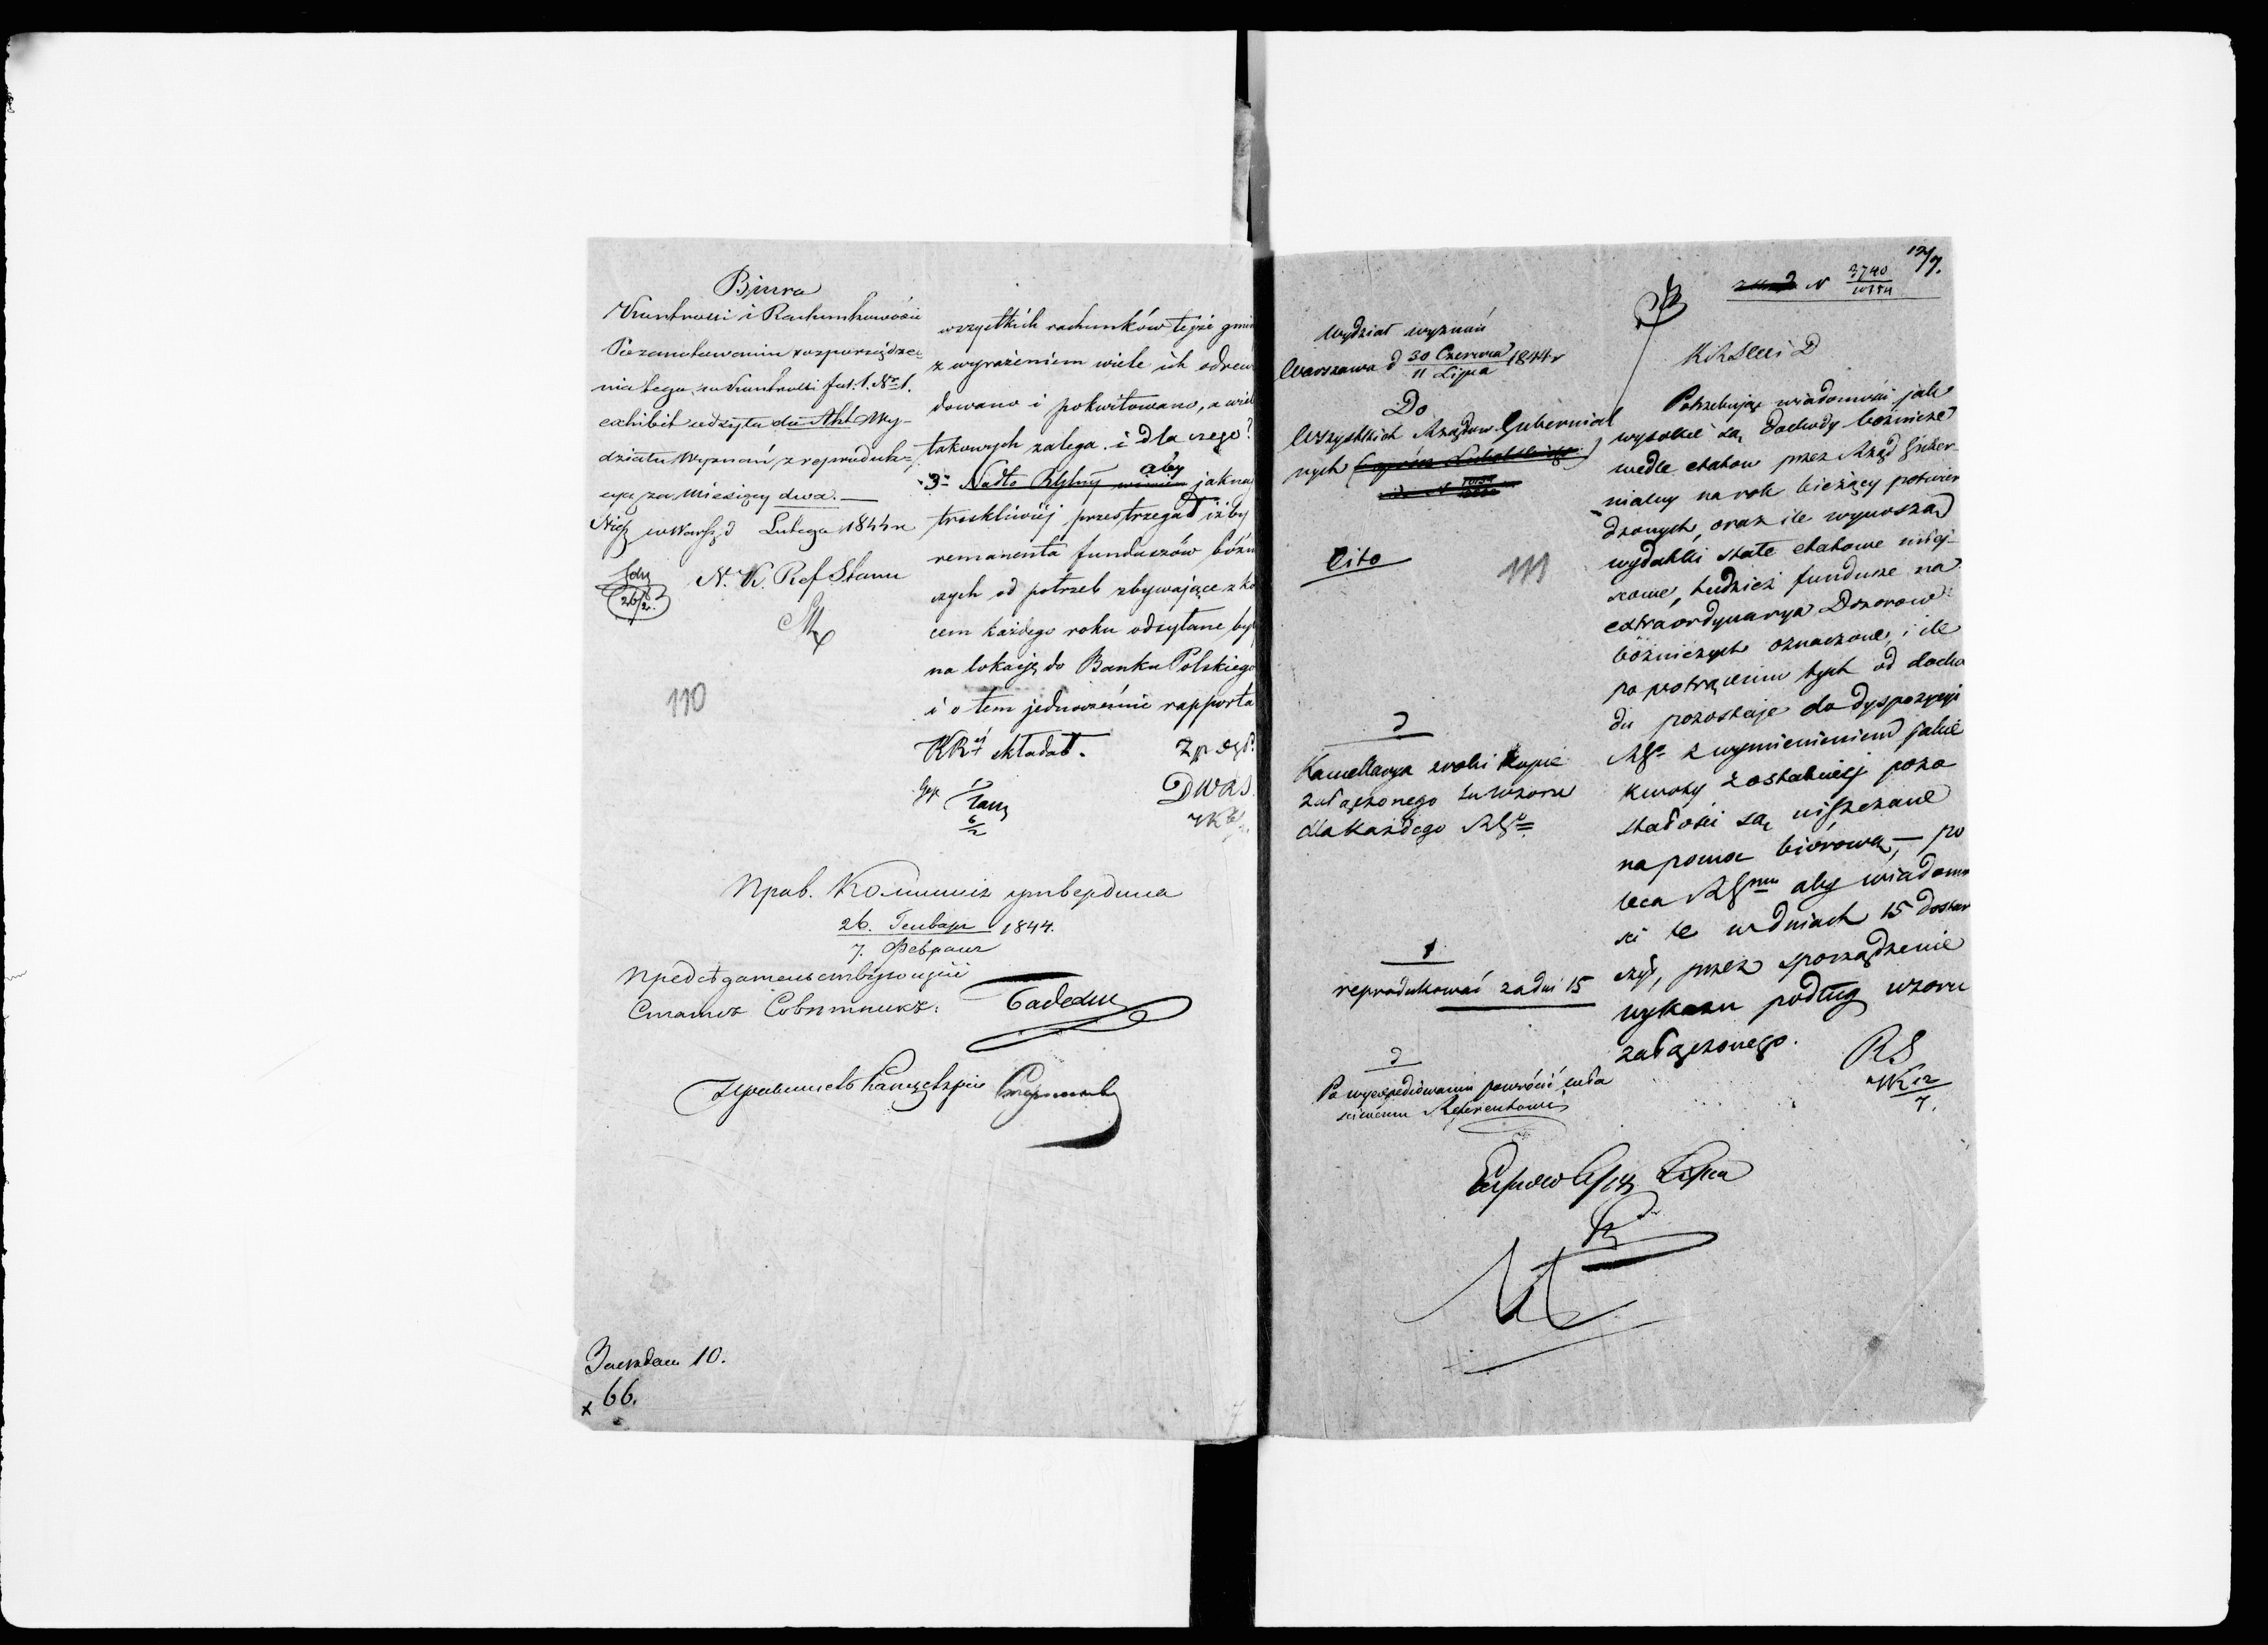 Biura
Kontrolli i Rachunkowości
Po zanotowaniu rozporządze-
nia tego, na Kontrolli fat. 1. Nr 1.
exhibit odsyła do Akt Wy-
działu Wyznań z reproduk-
cyą za Miesięcy dwa. —
w Warsz. d Lutego 1844 r
26/2.
N. K. Ref. Stanu
110
wszystkich rachunków tejże gmi
z wyrażeniem wiele ich odrew
dowano i pokwitowano, a wiel
takowych zalega. i dla czego?
aby
3- Nadto jaknaj
troskliwiéj przestrzegał iżby
remanenta funduszów bóżn
czych od potrzeb zbywające z ko
cem każdego roku odsyłane był
na lokacyę do Banku Polskiego
i o tem jednocześnie rapporta
KRej składał.
6/2
DWRS.
Прав. Коммисія утвердила
26. Генваря / 7. Февраля 1844.
Председательствующій
Статсъ Совѣтникъ.
Правитель Канцеляріи
10.
x 66.
7
12/7.
N 3740
Wydział wyznań
Warszawa d 30 Czerwca / 11 Lipca 1844 r
Do
Wszystkich Rządów Gubernial
nych
Cito
111
2
Kancellarya zrobi kopie
załączonego tu wzoru
dla każdego RGo
1
reprodukować za dni 15
2
Po wyexpediowaniu powrócić wła
sciwemu Referentowi
K R S W i D
Potrzebując wiadomości jak
wysokie są dochody bóżnicze
wedle etatów przez Rząd Guber-
nialny na rok bieżący potwier
dzonych, oraz ile wynoszą
wydatki stałe etatowe miej-
scowe, tudzież fundusze na
extraordynarya Dozorów
bóżniczych oznaczone, i ile
po potrąceniu tych od docho
du pozostaje do dyspozycyi
RGo z wymienieniem jakie
kwoty z ostatniej pozo
stałości są uiszczane
na pomoc biórową, — po
leca RGmu aby wiadomo
ści te w dniach 15 dostar
czył, przez sporządzenie
wykazu podług wzoru
załączonego.
RS
WR 12/7.
Lipca